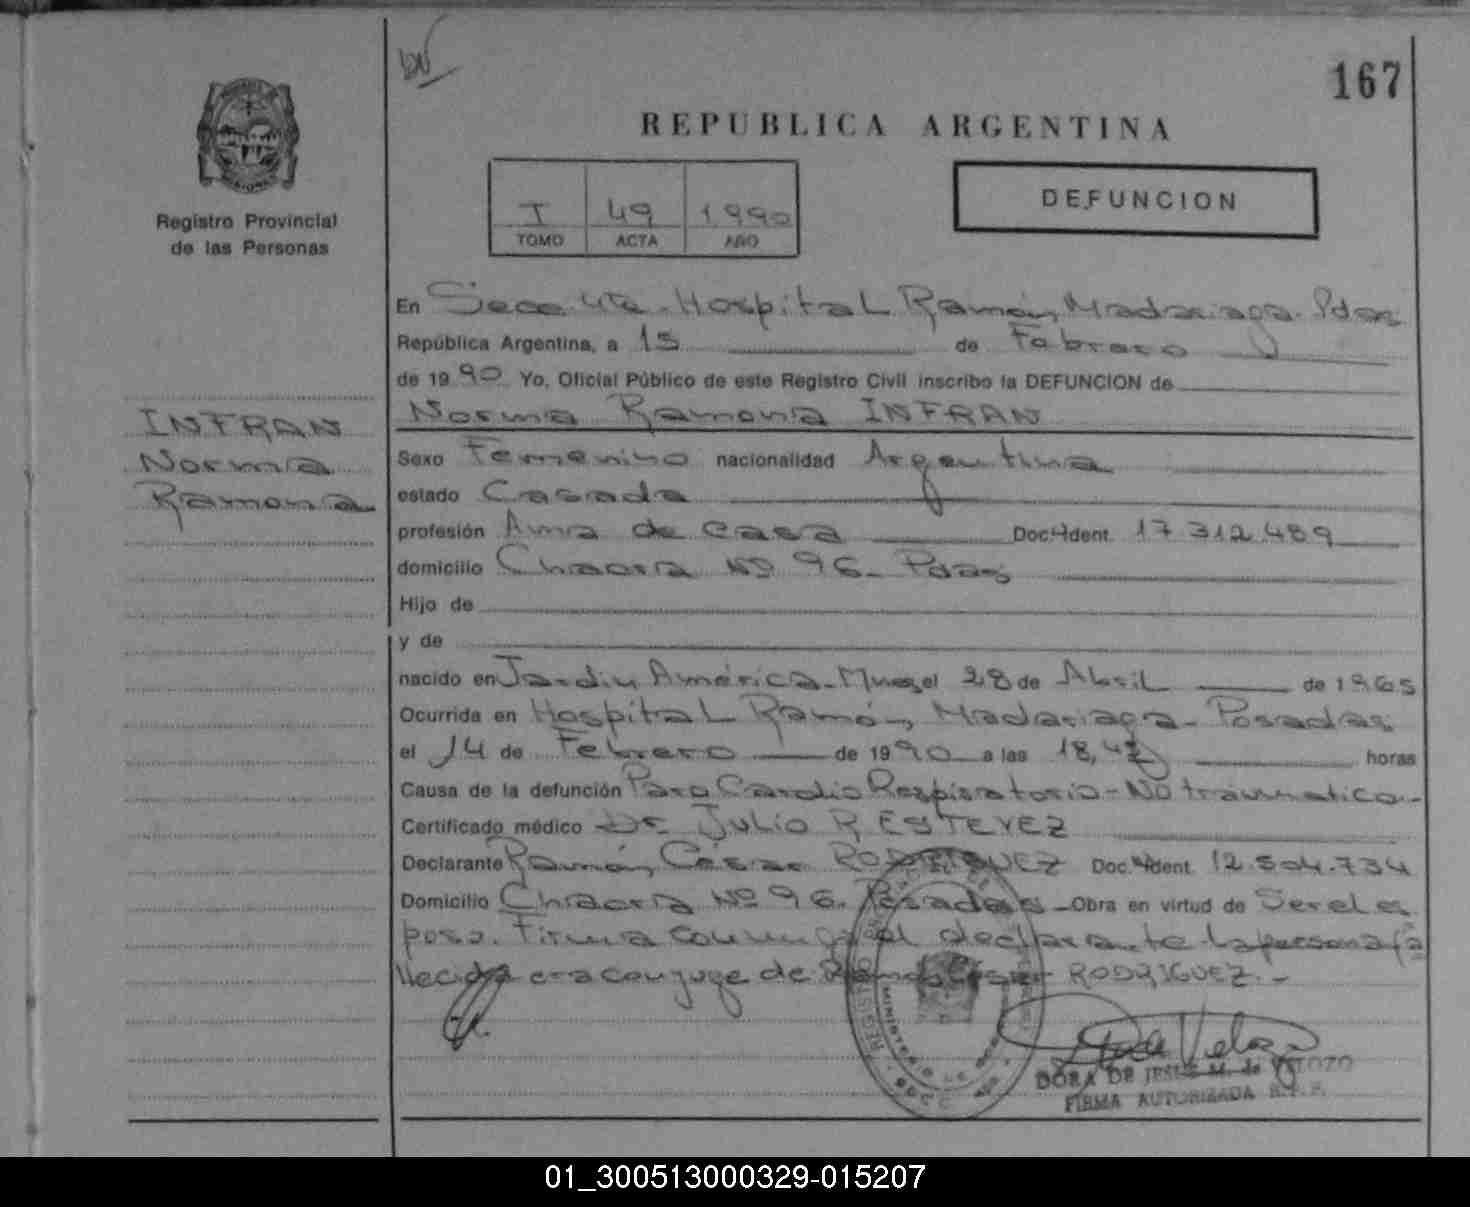 167
REPUBLICA ARGENTINA
Registro Provincial
de las Personas
I 49 1990
TOMO ACTA AÑO
DEFUNCION
En Secc. 4ta. Hospital Ramón Madariaga. Pdas
República Argentina, a 15 de Febrero
de 1990 Yo, Oficial Público de este Registro Civil inscribo la DEFUNCION de
Norma Ramona INFRAN
INFRAN
Norma
Ramona
Sexo Femenino nacionalidad Argentina
estado Casada
profesión Ama de casa Doc. Ident. 17.312.489
domicilio Chacra Nº 96. Pdas
Hijo de
y de
nacido en Jardín América - Mnes el 28 de Abril de 1965
Ocurrida en Hospital Ramón Madariaga - Posadas
el 14 de Febrero de 1990 a las horas
Causa de la defunción Paro Cardio Respiratorio - No traumatico -
Certificado médico Dr. Julio R ESTEVEZ
Declarante Ramón César RODRIGUEZ Doc. Ident. 12.504.734
Domicilio Chacra Nº 96. Posadas - Obra en virtud de Ser el es
poso. Firma conmigo el declarante. La persona fa
llecida era conjuge de Ramón César RODRIGUEZ. -
DORA DE JESUS M. de VELOZO
FIRMA AUTORIZADA R.P.P.
01_300513000329-015207